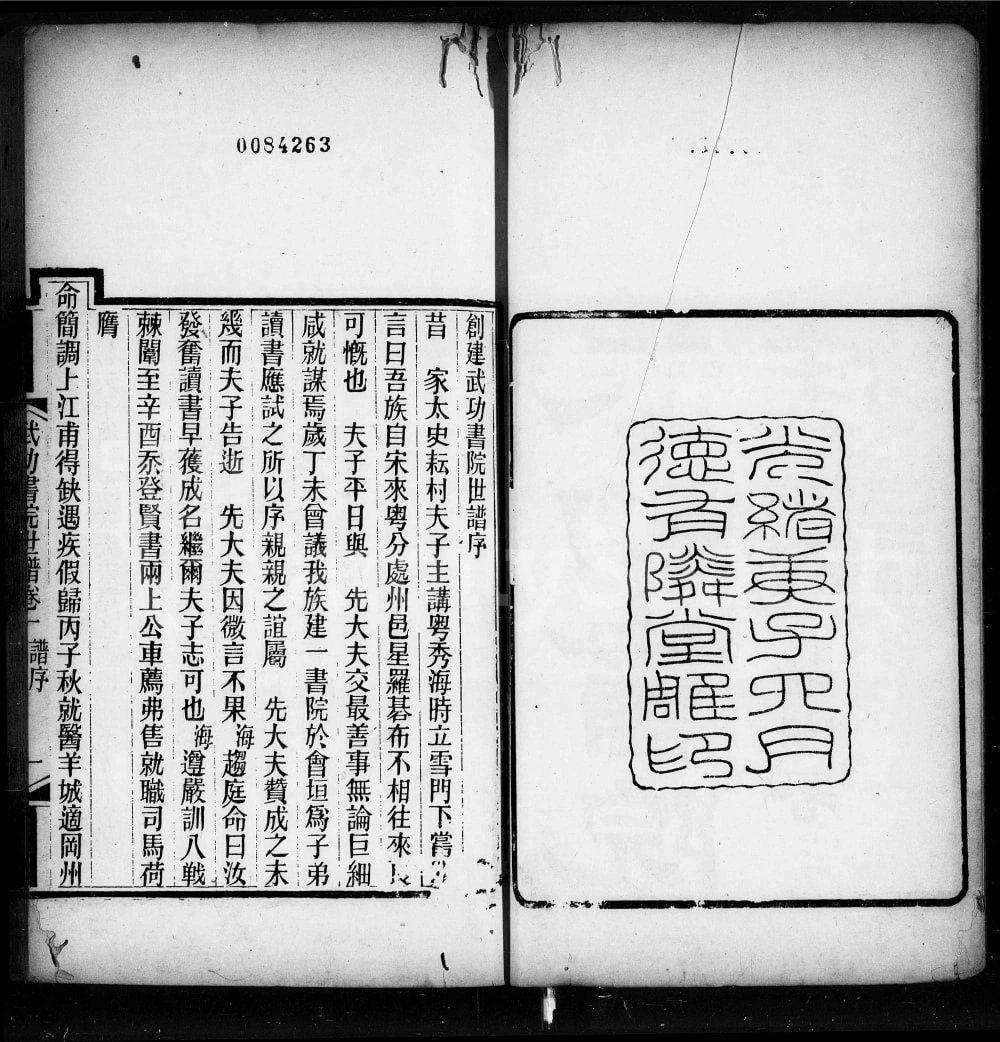 光緒庚子四月
德有隣堂雕印
0084263
創建武功書院世譜序
昔　家太史耘村夫子主講粵秀海時立雪門下嘗
言曰吾族自宋來粵分處州邑星羅碁布不相往來
可慨也　夫子平日與　先大夫交最善事無論巨細
咸就謀焉歲丁未會議我族建一書院於會垣爲子弟
讀書應試之所以序親親之誼屬　先大夫贊成之未
幾而夫子告逝　先大夫因微言不果海趨庭命曰汝
發奮讀書早獲成名繼爾夫子志可也海遵嚴訓八戰
棘闈至辛酉忝登賢書兩上公車薦弗售就職司馬荷
膺
命簡調上江甫得缺遇疾假歸丙子秋就醫羊城適岡州
武功書院世譜卷一　譜序　一